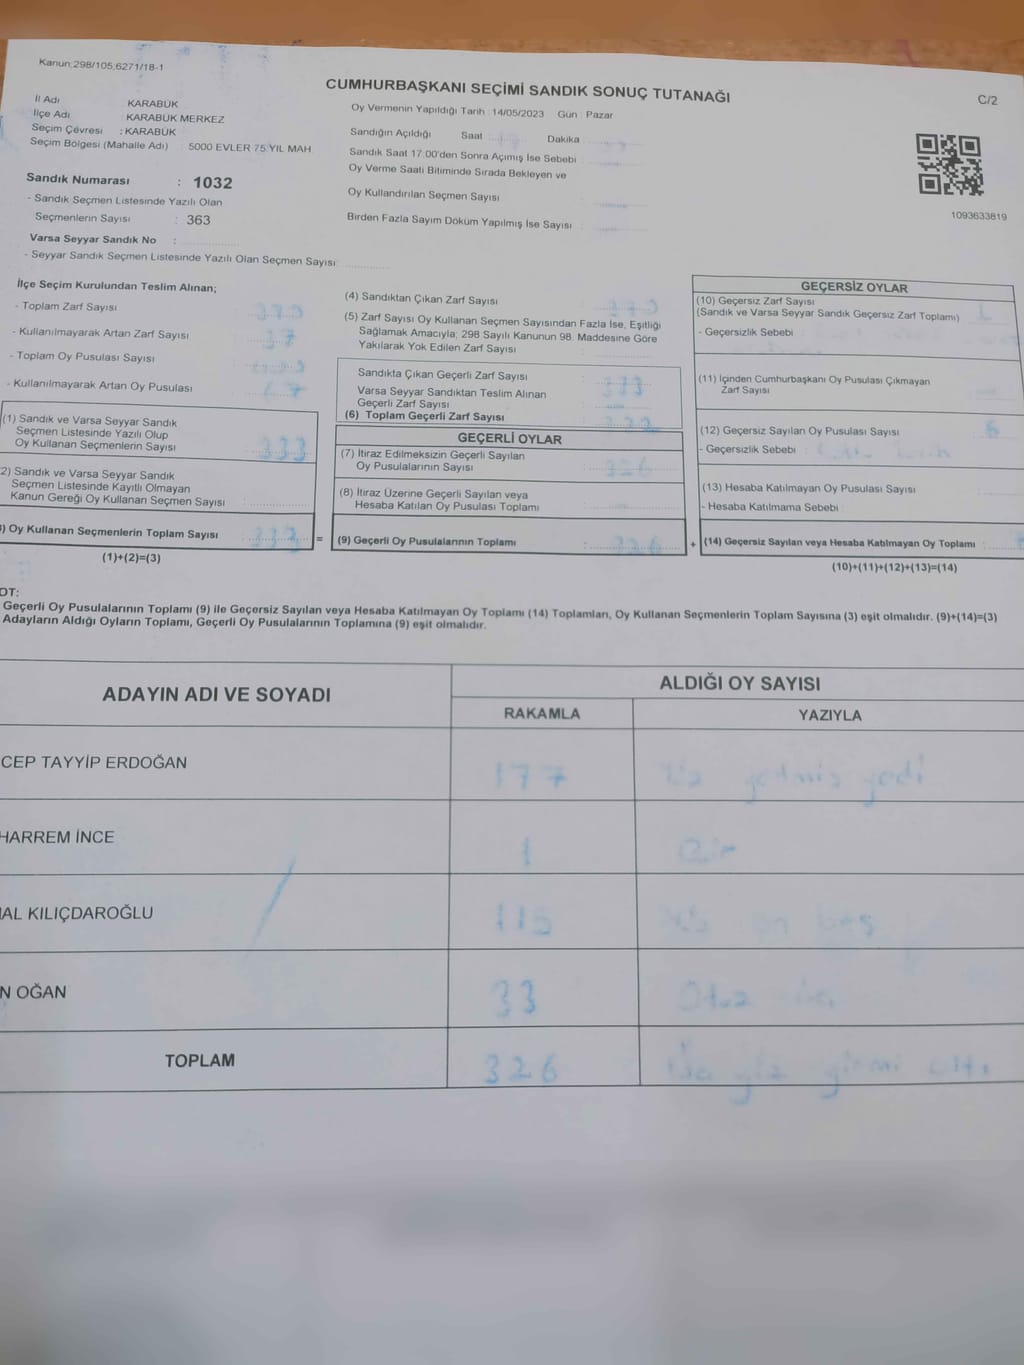 Kanun:298/105;6271/18-1
CUMHURBAŞKANI SEÇİMİ SANDIK SONUÇ TUTANAĞI
C/2
İl Adı KARABÜK
İlçe Adı KARABÜK MERKEZ
Seçim Çevresi : KARABÜK
Seçim Bölgesi (Mahalle Adı) : 5000 EVLER 75.YIL MAH
Oy Vermenin Yapıldığı Tarih : 14/05/2023 Gün : Pazar
Sandığın Açıldığı Saat : Dakika :
Sandık Saat 17:00'den Sonra Açımış İse Sebebi :
Oy Verme Saati Bitiminde Sırada Bekleyen ve
Oy Kullandırılan Seçmen Sayısı :
Birden Fazla Sayım Döküm Yapılmış İse Sayısı :
1093633819
Sandık Numarası : 1032
- Sandık Seçmen Listesinde Yazılı Olan
Seçmenlerin Sayısı : 363
Varsa Seyyar Sandık No :
- Seyyar Sandık Seçmen Listesinde Yazılı Olan Seçmen Sayısı:
İlçe Seçim Kurulundan Teslim Alınan;
- Toplam Zarf Sayısı :
- Kullanılmayarak Artan Zarf Sayısı : 37
- Toplam Oy Pusulası Sayısı :
- Kullanılmayarak Artan Oy Pusulası :
(1) Sandık ve Varsa Seyyar Sandık
Seçmen Listesinde Yazılı Olup
Oy Kullanan Seçmenlerin Sayısı : 333
2) Sandık ve Varsa Seyyar Sandık
Seçmen Listesinde Kayıtlı Olmayan
Kanun Gereği Oy Kullanan Seçmen Sayısı :
) Oy Kullanan Seçmenlerin Toplam Sayısı : 333 =
(1)+(2)=(3)
(4) Sandıktan Çıkan Zarf Sayısı :
(5) Zarf Sayısı Oy Kullanan Seçmen Sayısından Fazla İse, Eşitliği
Sağlamak Amacıyla; 298 Sayılı Kanunun 98. Maddesine Göre
Yakılarak Yok Edilen Zarf Sayısı :
Sandıkta Çıkan Geçerli Zarf Sayısı : 333
Varsa Seyyar Sandıktan Teslim Alınan
Geçerli Zarf Sayısı :
(6) Toplam Geçerli Zarf Sayısı :
GEÇERLİ OYLAR
(7) İtiraz Edilmeksizin Geçerli Sayılan
Oy Pusulalarının Sayısı : 326
(8) İtiraz Üzerine Geçerli Sayılan veya
Hesaba Katılan Oy Pusulası Toplamı :
(9) Geçerli Oy Pusulalarının Toplamı : 326 +
GEÇERSİZ OYLAR
(10) Geçersiz Zarf Sayısı
(Sandık ve Varsa Seyyar Sandık Geçersiz Zarf Toplamı) : 1
- Geçersizlik Sebebi :
(11) İçinden Cumhurbaşkanı Oy Pusulası Çıkmayan
Zarf Sayısı :
(12) Geçersiz Sayılan Oy Pusulası Sayısı : 6
- Geçersizlik Sebebi :
(13) Hesaba Katılmayan Oy Pusulası Sayısı :
- Hesaba Katılmama Sebebi :
(14) Geçersiz Sayılan veya Hesaba Katılmayan Oy Toplamı :
(10)+(11)+(12)+(13)=(14)
OT:
Geçerli Oy Pusulalarının Toplamı (9) ile Geçersiz Sayılan veya Hesaba Katılmayan Oy Toplamı (14) Toplamları, Oy Kullanan Seçmenlerin Toplam Sayısına (3) eşit olmalıdır. (9)+(14)=(3)
Adayların Aldığı Oyların Toplamı, Geçerli Oy Pusulalarının Toplamına (9) eşit olmalıdır.
ADAYIN ADI VE SOYADI ALDIĞI OY SAYISI
RAKAMLA YAZIYLA
CEP TAYYİP ERDOĞAN 177 Yüz yetmiş yedi
HARREM İNCE 1 Bir
AL KILIÇDAROĞLU 115 Yüz on beş
N OĞAN 33 Otuz üç
TOPLAM 326 Üç yüz yirmi altı